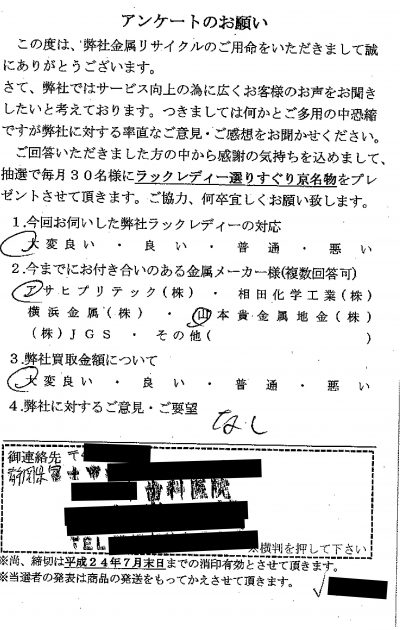 アンケートのお願い
この度は、弊社金属リサイクルのご用命をいただきまして誠
にありがとうございます。
さて、弊社ではサービス向上の為に広くお客様のお声をお聞き
したいと考えております。つきましては何かとご多用の中恐縮
ですが弊社に対する率直なご意見・ご感想をお聞かせください。
ご回答いただきました方の中から感謝の気持ちを込めまして、
抽選で毎月30名様にラックレディー選りすぐり京名物をプレ
ゼントさせて頂きます。ご協力、何卒宜しくお願い致します。
1.今回お伺いした弊社ラックレディーの対応
大変良い・良い・普通・悪い
2.今までにお付き合いのある金属メーカー様(複数回答可)
アサヒプリテック(株)・相田化学工業(株)
横浜金属(株)・山本貴金属地金(株)
(株)JGS・その他( )
3.弊社買取金額について
大変良い・良い・普通・悪い
4.弊社に対するご意見・ご要望
なし
御連絡先 〒
静岡県
歯科医院
TEL
※横判を押して下さい
※尚、締切は平成24年7月末日までの消印有効とさせて頂きます。
※当選者の発表は商品の発送をもってかえさせて頂きます。